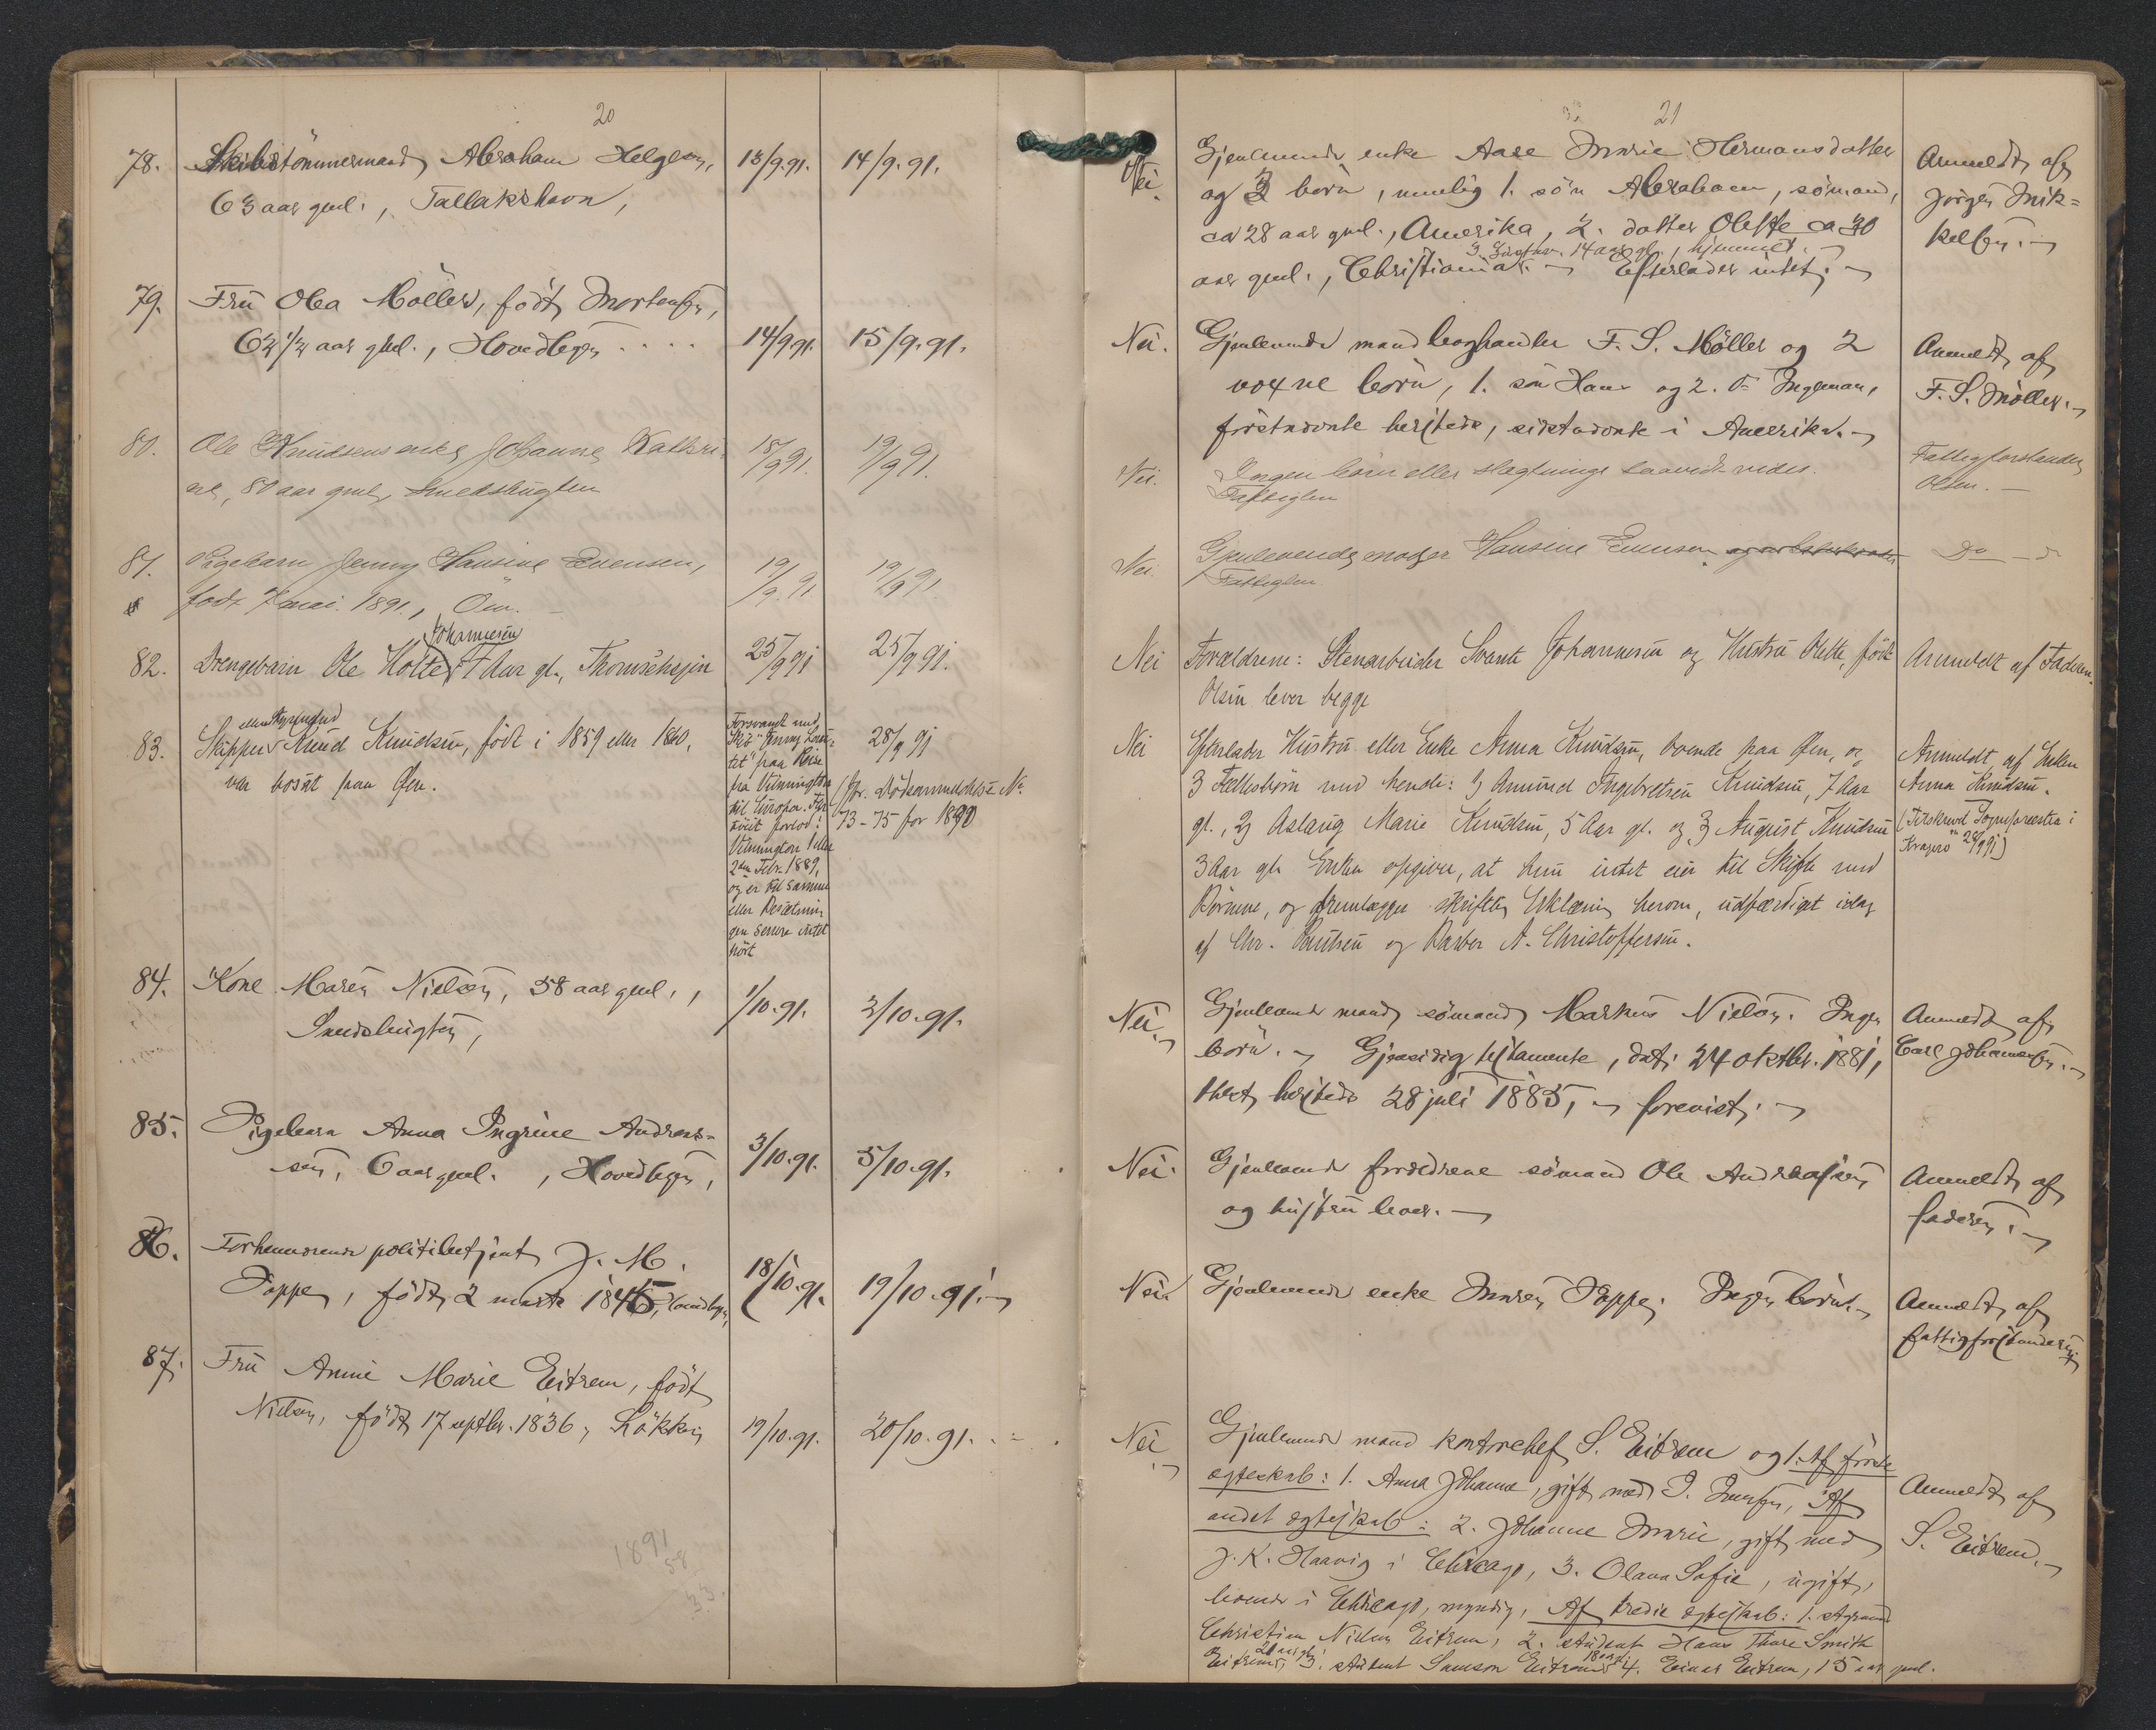 20
78. Skibstömmermand Abraham Helgesen, 13/9.91. 14/9.91.
63 aar gml., Tallakshavn,
79. Frü Olea Möller, födt Mortensen,
62 1/2 aar gml., Hovedbyen .... 14/9.91. 15/9.91.
80. Ole Knudsens enke Johanne Kathri- 18/9 91. 19/9 91.
ne, 80 aar gml, Smedsbugten
81. Pigebarn Jenny Hansine Evensen, 19/9.91 19/9 91.
födt 7 mai 1891., Öen.
Johannesen
82. Drengebarn Ole Holte 7 Aar gl., 25/9 91 25/9 91.
83. Skipper Knud Knudsen, födt i 1859 eller 1860, 28/9 91
var bosat paa Øen.
Forsvandt med
Skib
paa Reise
fra Wilmington
til Europa.
Wilmington 1 eller
2den Febr. 1889,
og er til samme
eller Besætnin
gen senere intet
hört
(Jfr. Dödsanmeldelse No.
73-75 for 1890
84. Kone Maren Nielsen, 58 aar gml., 1/10.91. 2/10.91.
Smedsbugten,
85. Pigebarn Anna Ingrine Andreas-
sen, 6 aar gml., Hovedbyen, 3/10.91. 5/10.91.
86. Forhenværende politibetjent J. M.
Poppe, födt 2 marts 1845, Hovedbyen, 18/10.91. 19/10.91.
87. Frü Anne Marie Eitrem, födt
Nielsen, födt 17 septbr. 1836, Løkken 19/10.91. 20/10.91.
1891
58
33
21
Nei. Gjenlevende enke Aase Marie Hermansdatter Anmeldt af
og 3 börn, nemlig 1. sön Abraham, sömand, Jörgen Mik-
ca 28 aar gml., Amerika, 2. datter Oleffe ca 30 kelsen.
3. Gustav. 14 aar gl., hjemme.
aar gml., Christiania. Efterlader intet.
Nei. Gjenlevende mand boghandler F. S. Möller og 2 Anmeldt af
voxne börn, 1. sön Hans og 2. do Ingeman, F. S. Möller.
förstnævnte hersteds, sidstnævnte i Amerika.
Nei. Ingen börn eller slægtninge saavidt vides. Fattigforstander
Fattiglem Olsen.
Nei. Gjenlevende moder Hansine Evensen Do
Fattiglem
Nei Forældrene: Stenarbeider Svante Johannesen og Hüstrü Olette, födt Anmeldt af Faderen.
Olsen lever begge
Nei Efterlader Hüstrü eller Enke Anna Knudsen, boende paa Øen, og Anmeldt af Enken
3 Fællesbørn med hende: 1) Amund Ingebretsen Knudsen, 7 Aar Anna Knudsen.
gl., 2) Aslaug Marie Knudsen, 5 Aar gl. og 3) August Knudsen (Tilskrevet Sognepresten i
3 Aar gl. Enken opgiver, at hun intet eier til Skifte med Kragerö 28/9 91)
Börnene, og fremlægger skriftlig Erklæring herom, udfærdiget idag
af Chr. Knudsen og Barber A. Christoffersen.
Nei. Gjenlevende mand, sömand Markus Nielsen. Ingen Anmeldt af
börn. Gjensidig testamente, dat. 24 oktbr. 1881, Carl Johannesen.
thlæst hersteds 28 juli 1885, forevist.
Nei. Gjenlevende forældrene sömand Ole Andreassen Anmeldt af
og hüstrü lever. faderen.
Nei. Gjenlevende enke Maren Poppe. Ingen börn. Anmeldt af
fattigforstanderen
Nei Gjenlevende mand kontorchef S. Eitrem og 1. Af förste
egteskab: 1. Anna Johanna, gift med I. Iversen, Af Anmeldt af
andet egteskab: 2. Johanne Marie, gift med S. Eitrem.
J. K. Haavig i Chicago, 3. Olava Sofie, ugift,
boende i Chicago, myndig, Af tredie egteskab: 1. styrmand
Christian Nielsen Eitrem, 2. student Hans Thure Smith
Eitrem, 20 aar gl. 3. student Samson Eitrem 18 aar gl. 4. Einar Eitrem, 15 aar gml.